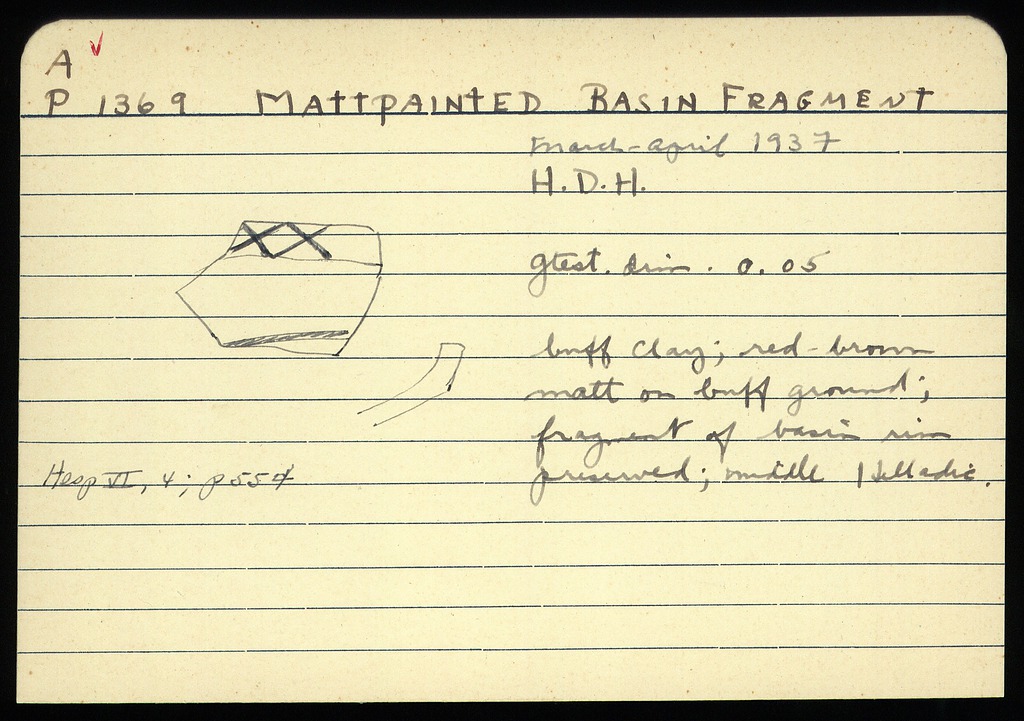 A ✓
P 1369 MATTPAINTED BASIN FRAGMENT
march-april 1937
H.D.H.
gtest. dim. 0.05
buff clay; red-brown
matt on buff ground;
fragment of basin rim
preserved; middle Helladic.
Hesp VI, 4; p 554